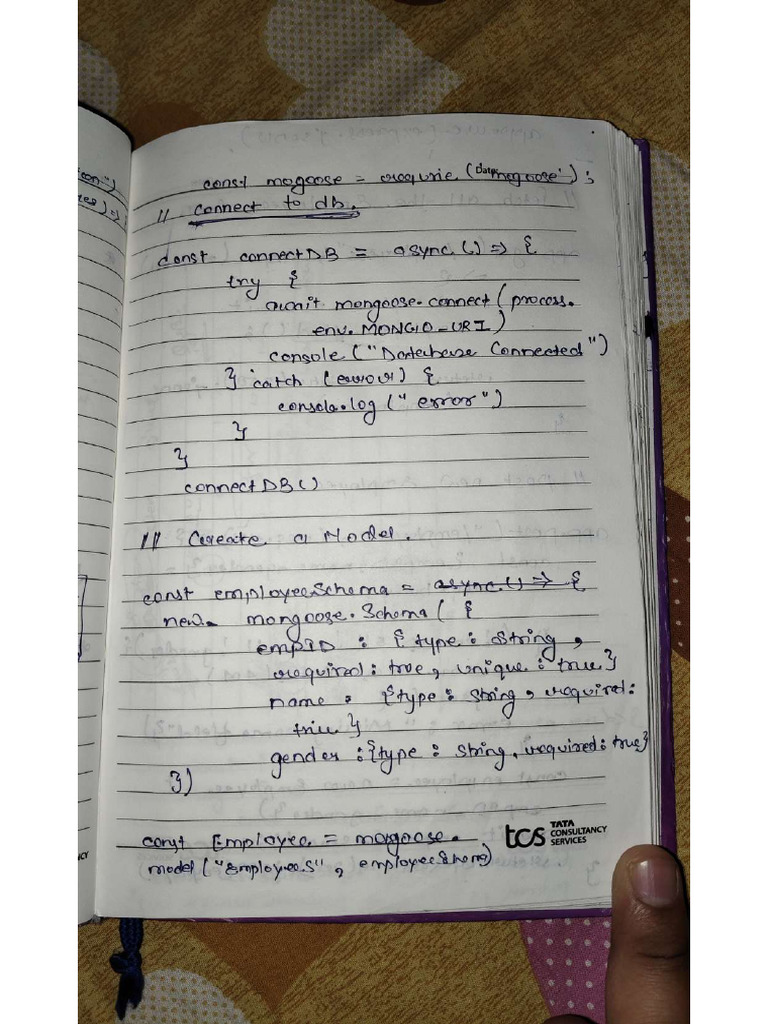 con")
res) =>
const mogoose = require (Date: mogoose');
// Connect to db.
const connectDB = async () => {
try {
await mongoose.connect (process.
env.MONGO_URI)
console ("Database Connected")
} catch (error) {
console.log (" error")
}
}
connectDB()
/// Create a Model.
const employeeSchema = async () => {
new mongoose.Schema ( {
empID : { type : String ,
required : true, unique : true }
name : {type : String , required :
true }
gender : {type : String, required : true}
})
const Employee = mongoose.
model ("Employees" , employeeSchema)
tcs TATA
CONSULTANCY
SERVICES